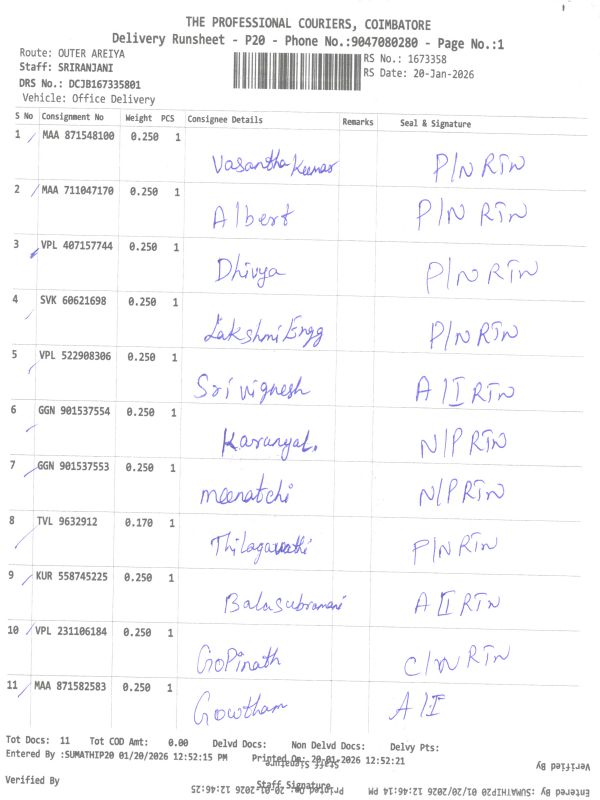 THE PROFESSIONAL COURIERS, COIMBATORE
Delivery Runsheet - P20 - Phone No.:9047080280 - Page No.:1
Route: OUTER AREIYA RS No.: 1673358
Staff: SRIRANJANI RS Date: 20-Jan-2026
DRS No.: DCJB167335801
Vehicle: Office Delivery
S No Consignment No Weight PCS Consignee Details Remarks Seal & Signature
1 MAA 871548100 0.250 1
Vasantha Kumar P/N RTN
2 MAA 711047170 0.250 1
Albert P/N RTN
3 VPL 407157744 0.250 1
Dhivya P/N RTN
4 SVK 60621698 0.250 1
Lakshmi Engg P/N RTN
5 VPL 522908306 0.250 1
Sri vignesh A/I RTN
6 GGN 901537554 0.250 1
Karanyal. N/P RTN
7 GGN 901537553 0.250 1
meenatchi N/P RTN
8 TVL 9632912 0.170 1
Thilagavathi P/N RTN
9 KUR 558745225 0.250 1
Balasubramani A I RTN
10 VPL 231106184 0.250 1
GoPinath C/N RTN
11 MAA 871582583 0.250 1
Gowtham A/I
Tot Docs: 11 Tot COD Amt: 0.00 Delvd Docs: Non Delvd Docs: Delvy Pts:
Entered By :SUMATHIP20 01/20/2026 12:52:15 PM Printed On: 20-01-2026 12:52:21
Staff Signature
Verified By
Verified By Staff Signature
Entered By : SUMATHIP20 01/20/2026 12:46:14 PM Printed On: 20-01-2026 12:46:25